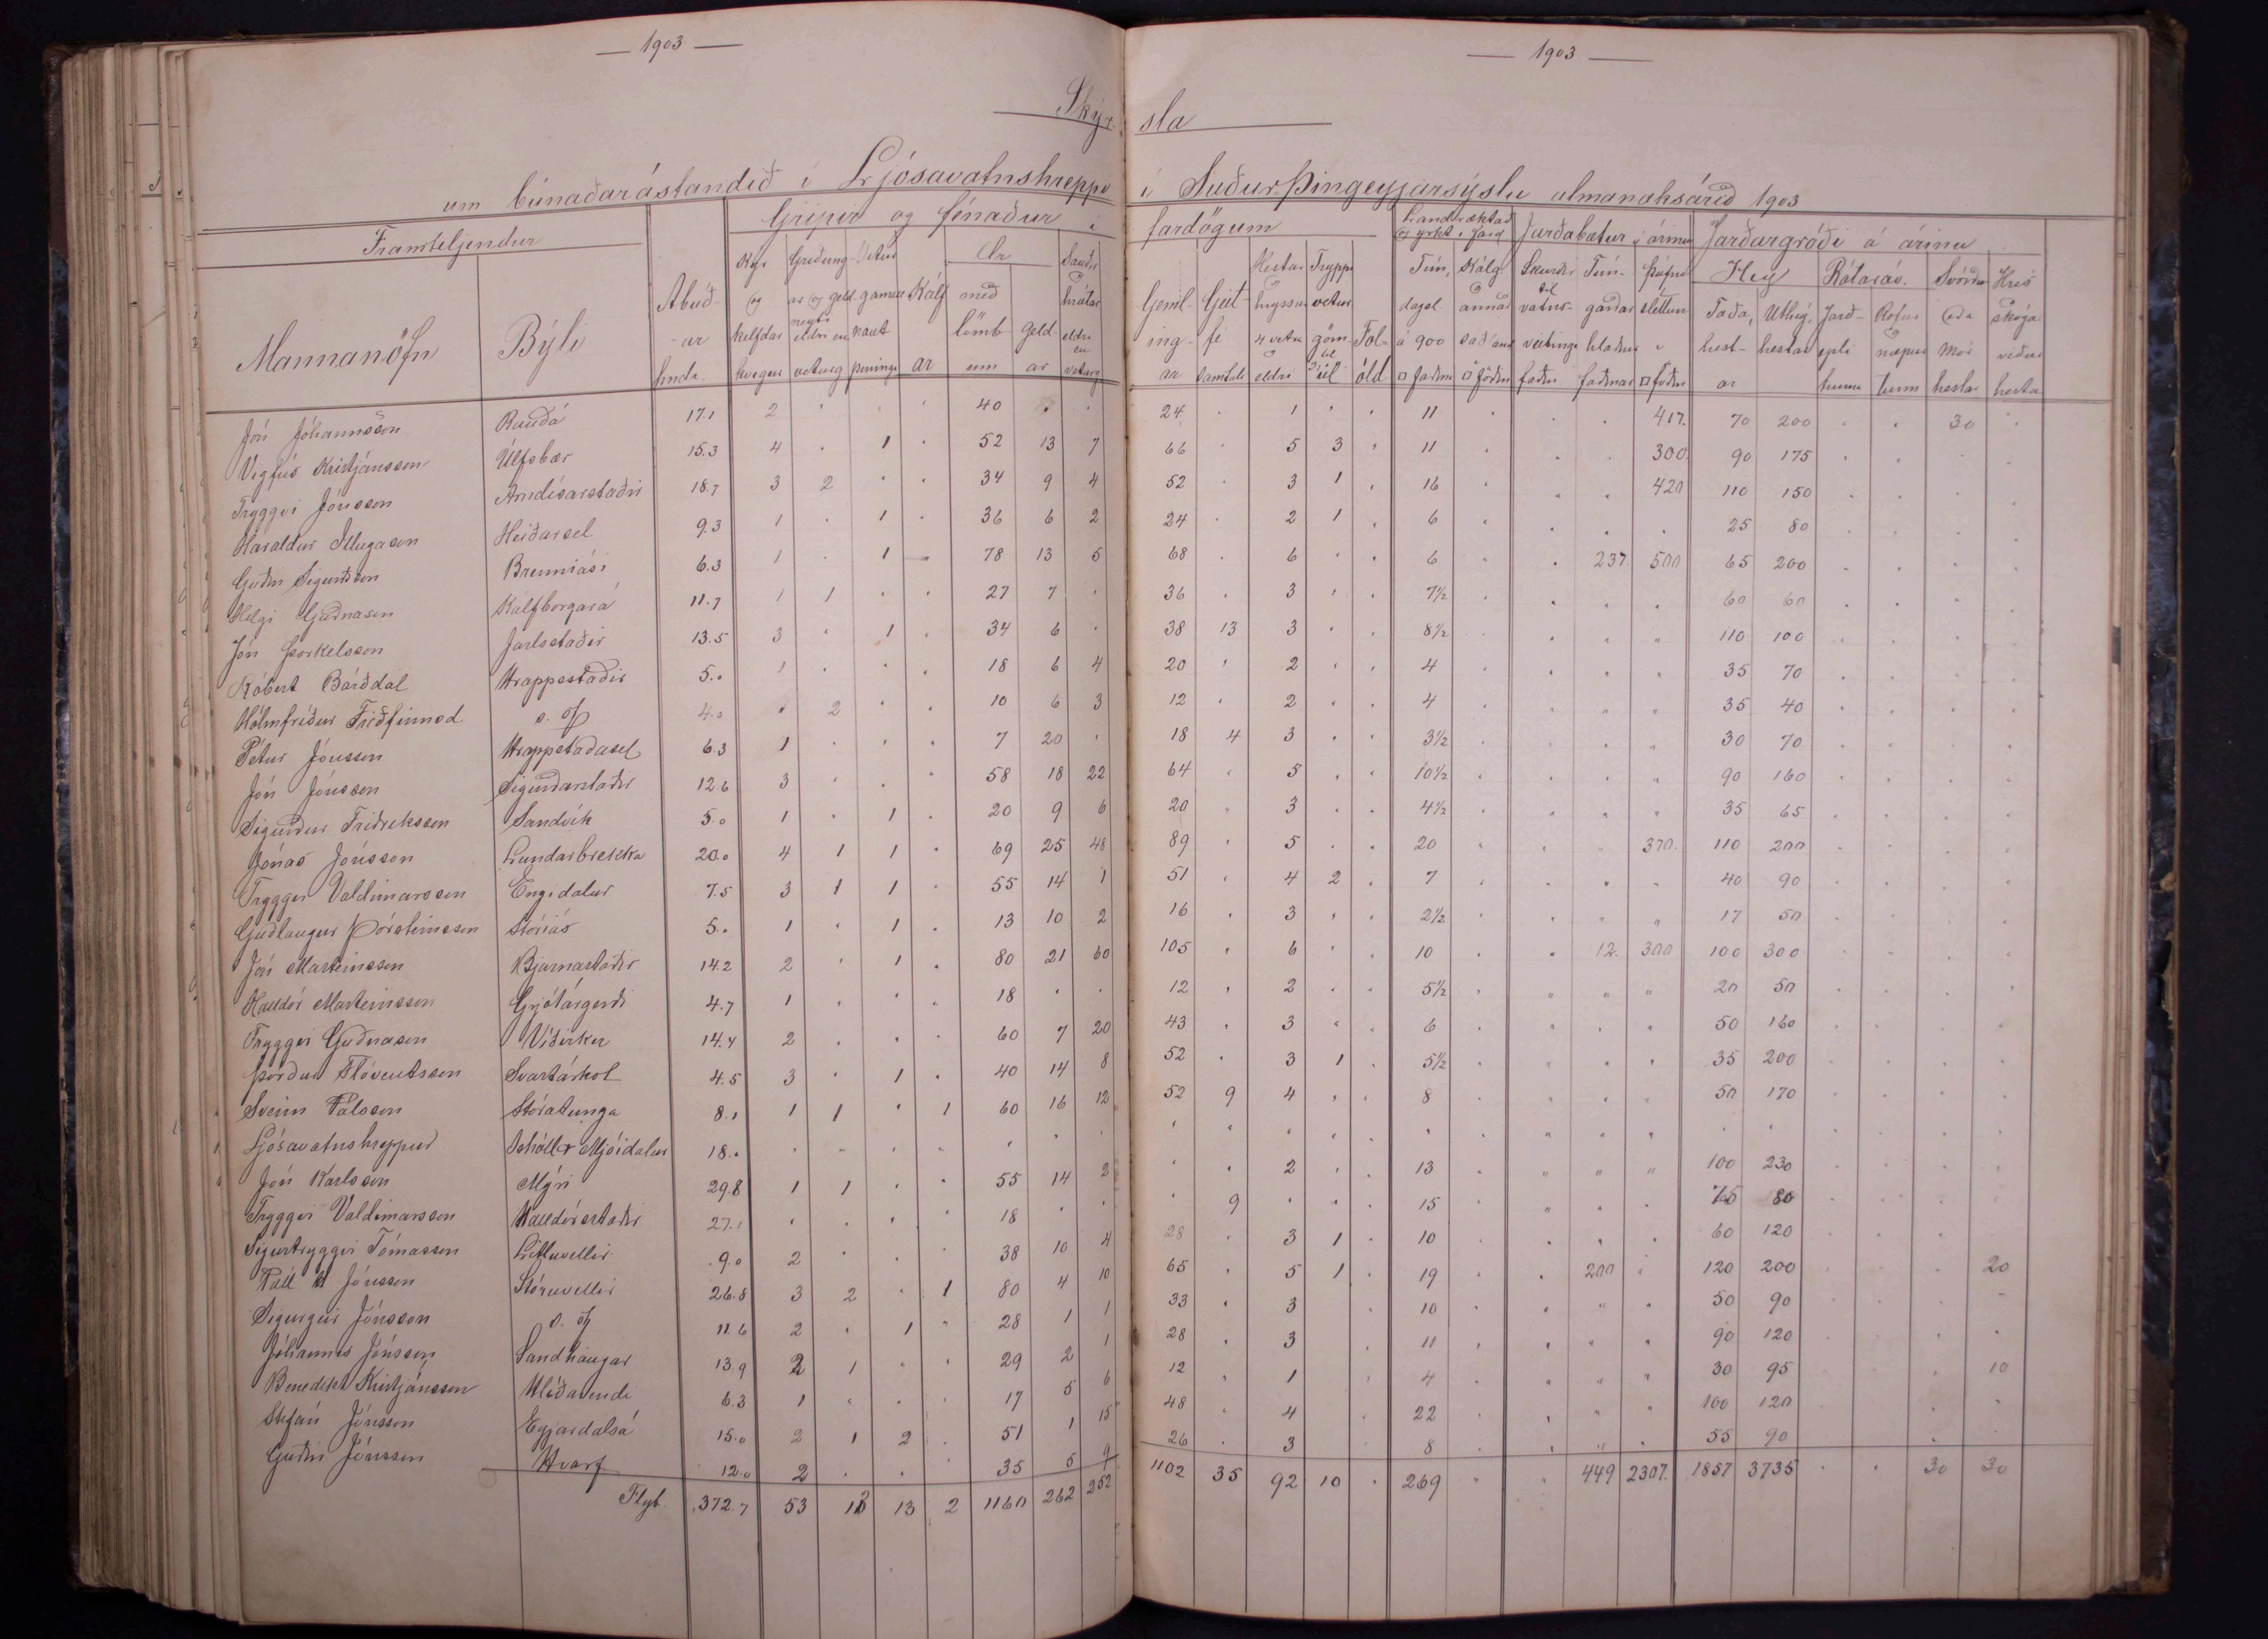 — 1903 —
— 1903 —
Skýr- sla
um búnaðarástandið í Ljósavatnshreppi í Suður-Þingeyjarsýslu almanaksárið 1903
Framteljendur Gripir og fénaður í fardögum Land ræktað og yrkt í fard Jarðabætur á árinu Jarðargróði á árinu
Mannanöfn Býli Ábúð-ar hndr. Kýr og kelfdar kvígur Griðung-ar og geld neyti eldri en veturg Vetur gamall naut peningr Kálf ar Ær með lömb um geld-ar Sauðir og hrútar eldri en veturg Geml-ing-ar Geit-fé samtals Hestar og hryssur 4 vetra og eldri Tryppi vetur göm til Fol-öld Tún, dagsl. á 900 □ faðma Kálg. og annað sáðland □ föðm Skurðir til vatns-veitinga faðm Tún-garðar hlaðnir faðmar Þúfna sléttun □ föðm Hey Taða, hest-ar Úthey, hestar Rótaráv. Jarð-epli tunnu Rófur og næpur tunn Svörður eða mór hestar Hrís skóga viður hesta
Jón Jóhannsson Rauðá 17.1 2 . . . 40 . . 24 . 1 . . 11 . . . 417. 70 200 . . 30 .
Vigfús Kristjánsson Úlfsbær 15.3 4 . 1 . 52 13 7 66 . 5 3 . 11 . . . 300. 90 175 . . . .
Tryggvi Jónsson Arndísarstaðir 18.7 3 2 . . 34 9 4 52 . 3 1 . 16 . . . 420 110 150 . . . .
Haraldur Illugason Heiðarsel 9.3 1 . 1 . 36 6 2 24 . 2 1 . 6 . . . . 25 80 . . . .
Guðni Sigurðsson Brenniási 6.3 1 . 1 . 78 13 5 68 . 6 . . 6 . . 237. 500 65 200 . . . .
Helgi Guðnason Kálfborgará 11.7 1 1 . . 27 7 . 36 . 3 . . 7½ . . . . 60 60 . . . .
Jón Þorkelsson Jarlstaðir 13.5 3 . 1 . 34 6 . 38 13 3 . . 8½ . . . " 110 100 . . . .
Róbert Bárðdal Hrappstaðir 5.0 1 . . . 18 6 4 20 . 2 . . 4 . . . . 35 70 . . . .
Hólmfríður Friðfinnsd. s. st 4.0 . 2 . . 10 6 3 12 . 2 . . 4 . . . . 35 40 . . . .
Pétur Jónsson Hrappstaðasel 6.3 1 . . . 7 20 . 18 4 3 . . 3½ . . . . 30 70 . . . .
Jón Jónsson Sigurðarstaðir 12.6 3 . . . 58 18 22 64 . 5 . . 10½ . . . . 90 160 . . . .
Sigurður Friðreksson Sandvík 5.0 1 . 1 . 20 9 6 20 . 3 . . 4½ . . . . 35 65 . . . .
Jónas Jónsson Lundarbrekka 20.0 4 1 1 . 69 25 48 89 . 5 . . 20 . . . 370. 110 200 . . . .
Tryggvi Valdimarsson Engidalur 7.5 3 1 1 . 55 14 1 51 . 4 2 . 7 . . . . 40 90 . . . .
Guðlaugur Þorsteinsson Stóriás 5.0 1 . 1 . 13 10 2 16 . 3 . . 2½ . . . . 17 50 . . . .
Jón Marteinsson Bjarnastaðir 14.2 2 . 1 . 80 21 60 105 . 6 . . 10 . . 12. 300 100 300 . . . .
Halldór Marteinsson Grjótárgerði 4.7 1 . . . 18 . . 12 . 2 . . 5½ . " " " 20 50 . . . .
Tryggvi Guðnason Víðirker 14.4 2 . . . 60 7 20 43 . 3 . . 6 . . . . 50 160 . . . .
Þórður Flóventsson Svartárkot 4.5 3 . 1 . 40 14 8 52 . 3 1 . 5½ . . . . 35 200 . . . .
Sveinn Pálsson Stóratunga 8.1 1 1 . 1 60 16 12 52 9 4 . . 8 . . . . 50 170 . . . .
Ljósavatnshreppur Ishóll & Mjóidalur 18.0 . . . . . . . . . . . . . . . . . . . . . . .
Jón Karlsson Mýri 29.8 1 1 . . 55 14 2 . . 2 . . 13 . " " " 100 230 . . . .
Tryggvi Valdimarsson Halldórsstaðir 27.1 . . . . 18 . . . 9 . . . 15 . . . . 75 80 . . . .
Sigurtryggvi Tómasson Litluvellir 9.0 2 . . . 38 10 4 28 . 3 1 . 10 . . . . 60 120 . . . .
Páll H Jónsson Stóruvellir 26.8 3 2 . 1 80 4 10 65 . 5 1 . 19 . . 200 . 120 200 . . . 20
Sigurgeir Jónsson s. st 11.6 2 . 1 . 28 1 1 33 . 3 . 10 . . . . 50 90 . . . .
Jóhannes Jónsson Sandhaugar 13.9 2 1 . . 29 2 1 28 . 3 . 11 . . . . 90 120 . . . .
Benedikt Kristjánsson Hlíðarendi 6.3 1 . . . 17 5 6 12 . 1 . 4 . . . . 30 95 . . . 10
Stefán Jónsson Eyjardalsá 15.0 2 1 2 . 51 1 15 48 . 4 . 22 . . . . 100 120 . . . .
Guðni Jónsson Hvarf 12.0 2 . . . 35 5 9 26 . 3 8 . . . . 55 90 . .
Flyt. 372.7 53 13 13 2 1160 262 252 1102 35 92 10 . 269 . . 449 2307. 1857 3735 . . 30 30